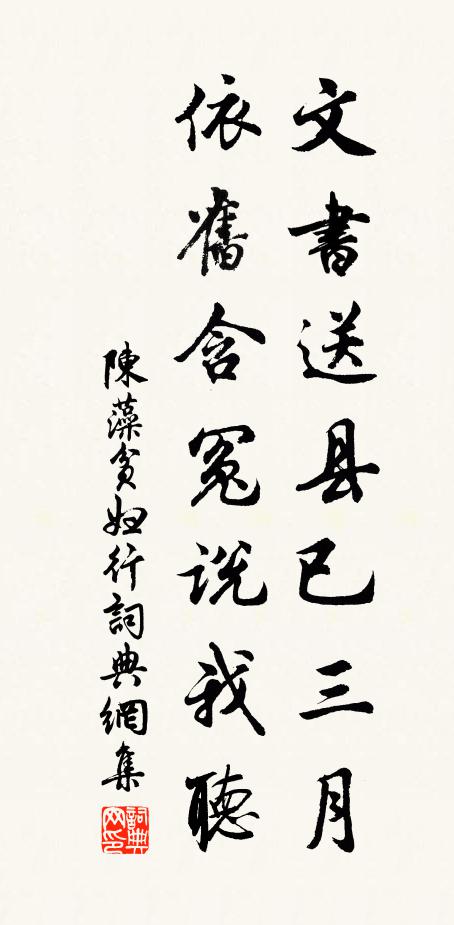 文書送县已三月
依舊含冤说我聽
陳藻貧婦行詞典網集
詞典网印